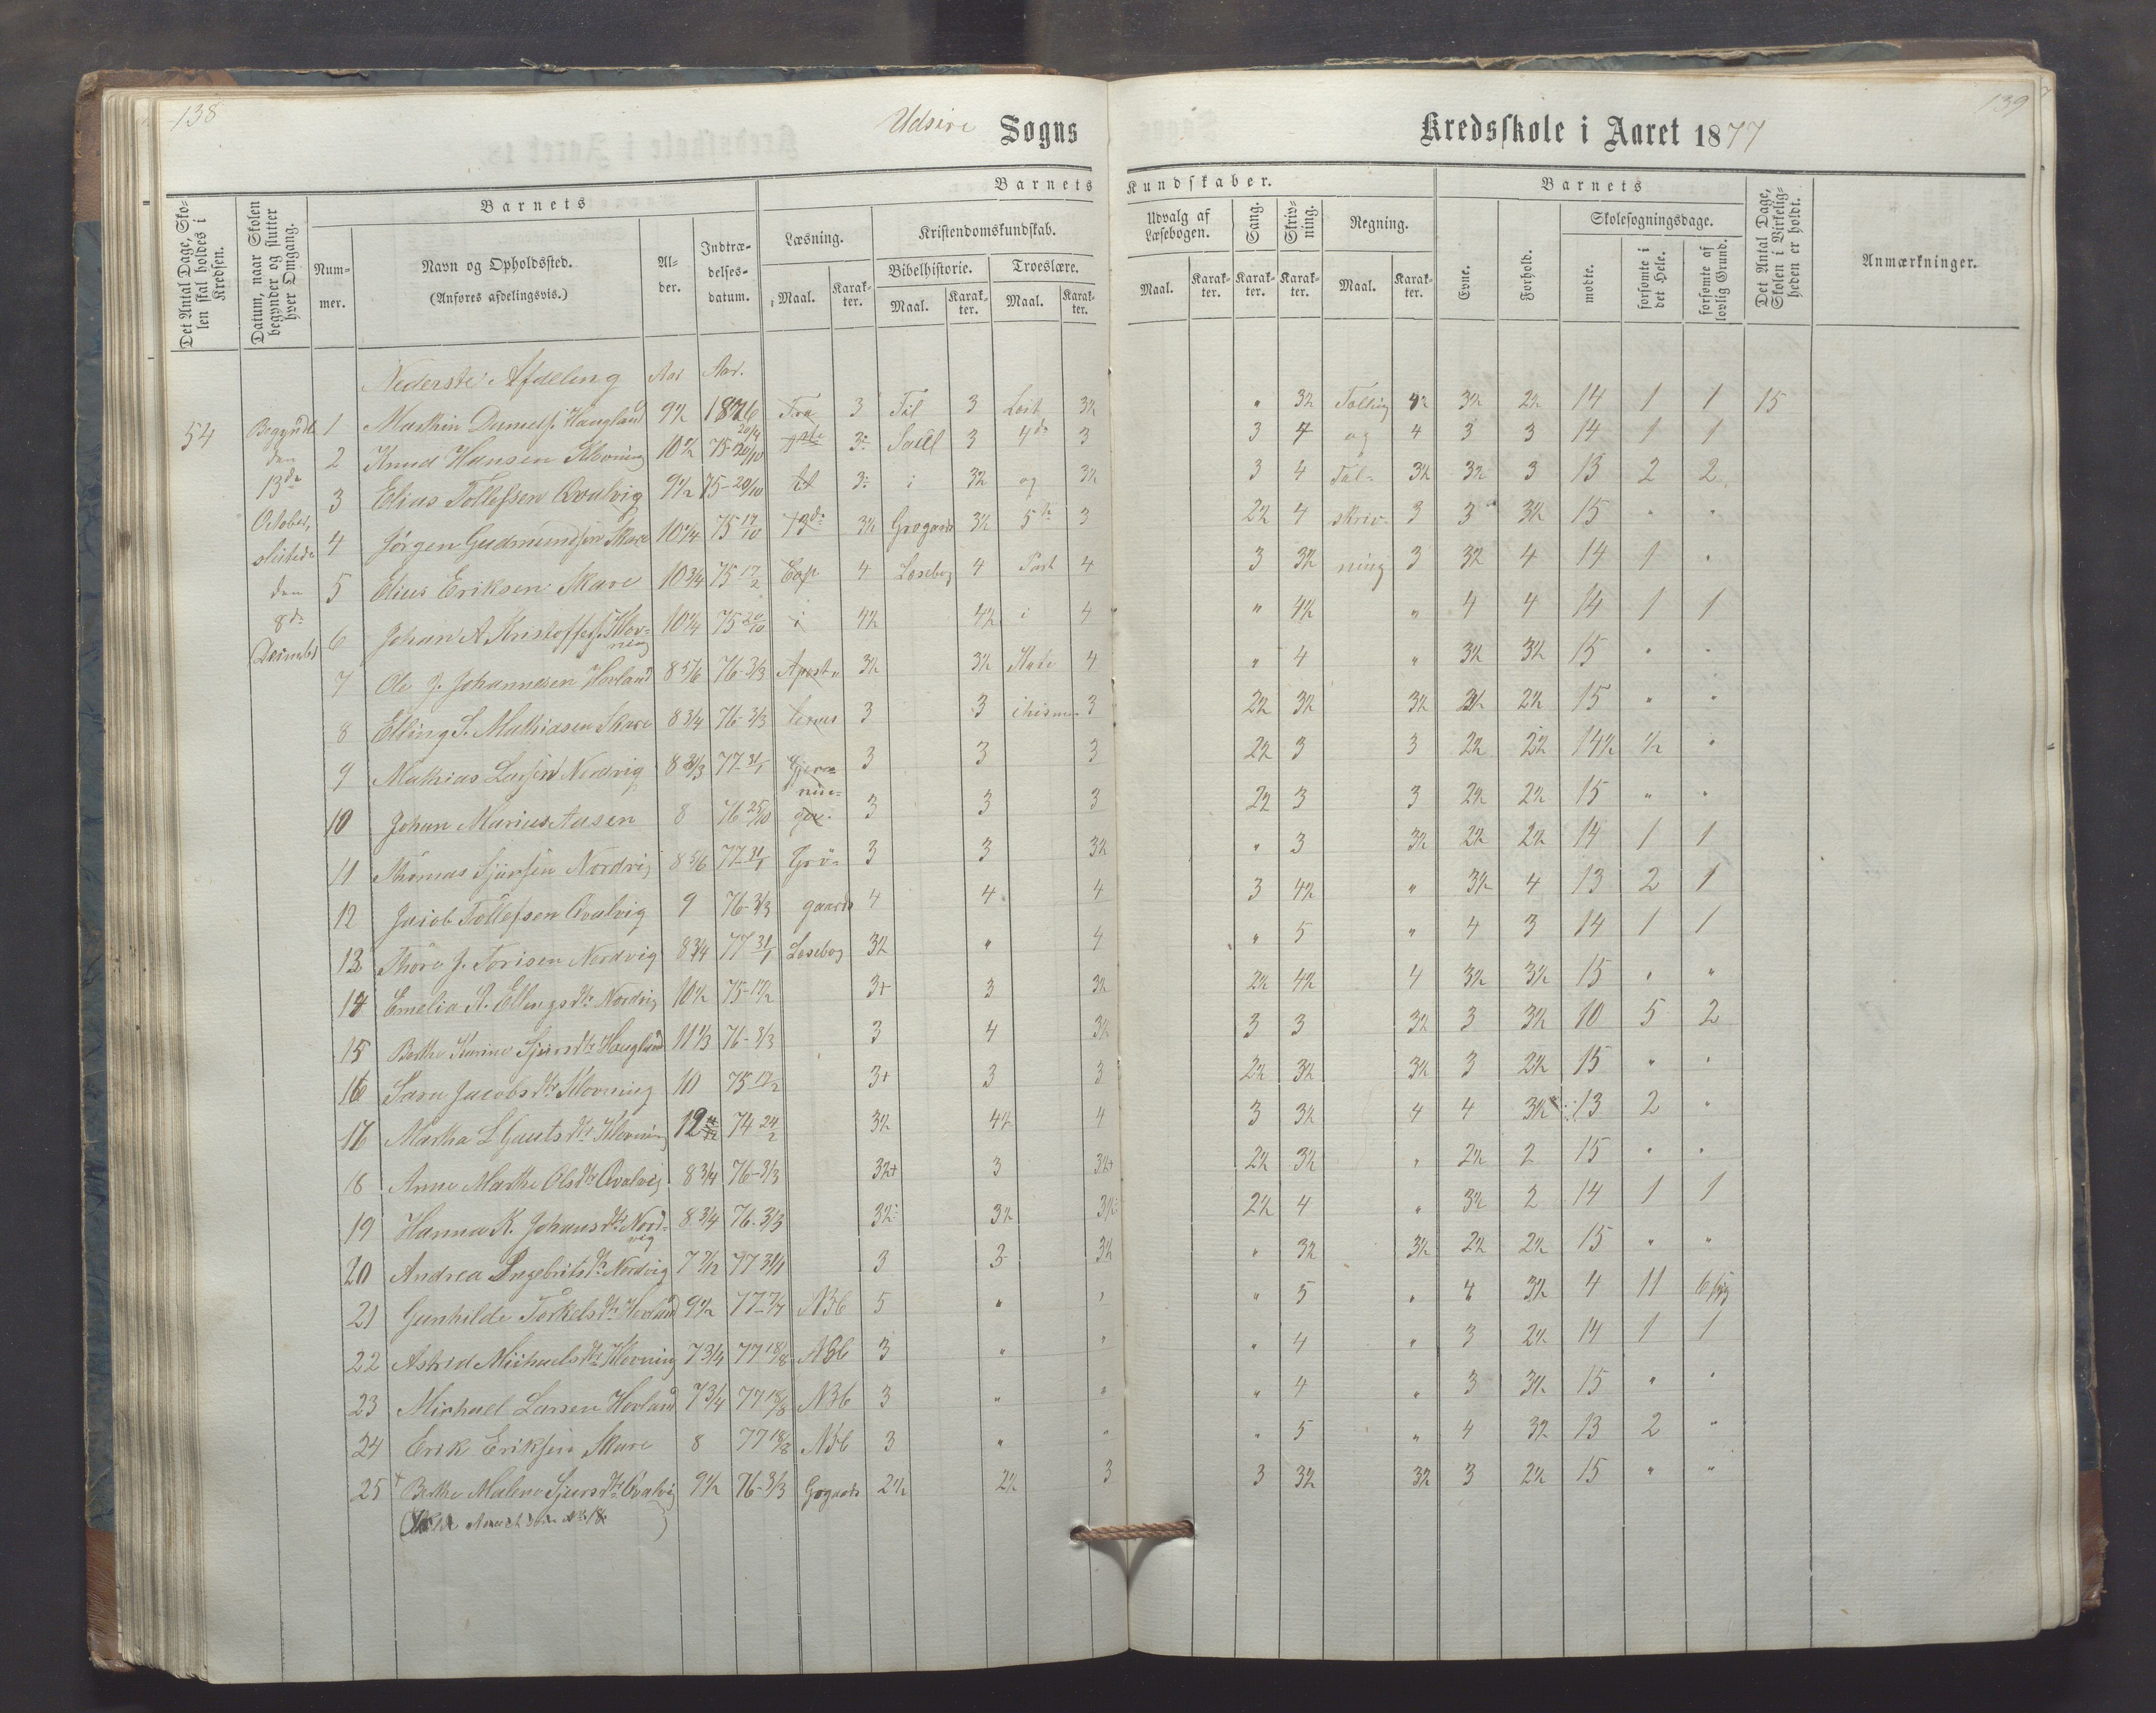 138
139
Udsire Sogns
Kredsskole i Aaret 1877
Det Antal Dage, Skolen skal holdes i Kredsen.
Datum, naar Skolen begynder og slutter hver Omgang.
Barnets
Nummer.
Navn og Opholdssted.
(Anføres afdelingsvis.)
Alder.
Indtrædelses-datum.
Barnets Kundskaber.
Læsning.
Kristendomskundskab.
Bibelhistorie.
Troeslære.
Udvalg af Læsebogen.
Sang.
Skrivning.
Regning.
Maal. Karakter. Maal. Karakter. Maal. Karakter.
Maal. Karakter. Karakter. Karakter. Maal. Karakter.
Barnets
Evne.
Forhold.
Skolesøgningsdage.
mødte.
forsømte i det Hele.
forsømte af lovlig Grund.
Det Antal Dage, Skolen i Virkeligheden er holdt.
Anmærkninger.
Nederste Afdeling Aar Aar.
54 Begyndte den 13de October, sluttede den 8de December
1 Haugland 9½ 1876 Fra 3 Til 3 3½ " 3½ 14 1 1 15
2 Knud Hansen Klovning 10½ 75-20/10 3 Saul 3 4de 3 3 4 og 4 3 3 14 1 1
3 Elias Tollefsen Qvalvig 9½ 75-20/10 til i 3½ og 3½ 3 4 Tal- 3½ 3½ 3 13 2 2
4 Jørgen Gudmundsen Skare 10¼ 3½ 3½ 5te 3 2½ 4 skriv- 3 3 3½ 15 " "
5 Elius Eriksen Skare 10¾ 75 17/2 Cap 4 Læsebog 4 Part 4 3 3½ ning 3 3½ 4 14 1 "
6 Johan A Kristoffers. Klovning 10¼ 75 20/10 i 4½ 4½ i 4 " 4½ " 4 4 14 1 1
7 Ole J. Johannesen Hovland 8 5/6 76-3/3 3½ 3½ 4 " 4 " 3½ 3½ 15 " "
8 Elling S. Mathiasen Skare 8¾ 76-3/3 3 3 3 2½ 3½ 3½ 2½ 15 " "
9 Mathias Larsen Nordvig 77-31/1 Gjer- 3 3 3 2½ 3 3 2½ 2½ 14½ ½ "
10 Johan Marius Aasen 8 76 25/10 3 3 3 2½ 3 3 2½ 2½ 15 " "
11 Thomas Sjursen Nordvig 8 5/6 77-31/1 Grø- 3 3 3½ " 3 3½ 2½ 2½ 14 1 1
12 Jacob Tollefsen Qvalvig 9 76-3/3 gaards 4 4 4 3 4½ " 3½ 4 13 2 1
13 Thore J. Torisen Nordvig 8¾ 77 31/1 Læsebog 3½ " 4 " 5 " 4 3 14 1 1
14 Emelia R. Ellingsdtr Nordvig 10½ 75-17/2 3+ 3 3½ 2½ 4½ 4 3½ 3½ 15 " "
15 Berthe Karine Sjursdtr Haugland 11⅓ 76-3/3 3 4 3½ 3 3 3½ 3 3½ 10 5 2
16 Sara Jacobsdtr Klovning 10 75 17/2 3+ 3 3 2½ 3½ 3½ 3 2½ 15 " "
17 Martha L Gautsdtr Klovning 74 24/2 3½ 4½ 4 3 3½ 4 4 3½ 13 2 "
18 Anne Marthe Olsdtr Qvalvig 8¾ 76-3/3 3½+ 3 3½+ 2½ 3½ " 2½ 2 15 " "
19 Hanna K. Johansdtr Nordvig 8¾ 76-3/3 3½ 3½ 3½ 2½ 4 " 3½ 2 14 1 1
20 Andrea Ingebritsdtr Nordvig 7 77 31/1 3 3 3½ " 3½ 3½ 2½ 2½ 15 " "
21 Gunhilde Torkelsdtr Hovland 9½ ABC 5 " " " 5 " 4 3½ 4 11 6
22 Astrid Michaelsdtr Klovning 7¾ 77 18/8 ABC 3 " " " 4 " 3 2½ 14 1 1
23 Michael Larsen Hovland 7¾ 77 18/8 ABC 3 " " " 4 " 3 3½ 15 " "
24 Erik Eriksen Skare 8 77 18/8 ABC 3 " " " 5 " 4 3½ 13 2 "
25 Berthe Malene Sjursdtr Qvalvig 9½ 76-3/3 2½ 2½ 3 3 3½ 3½ 3 2½ 15 " "